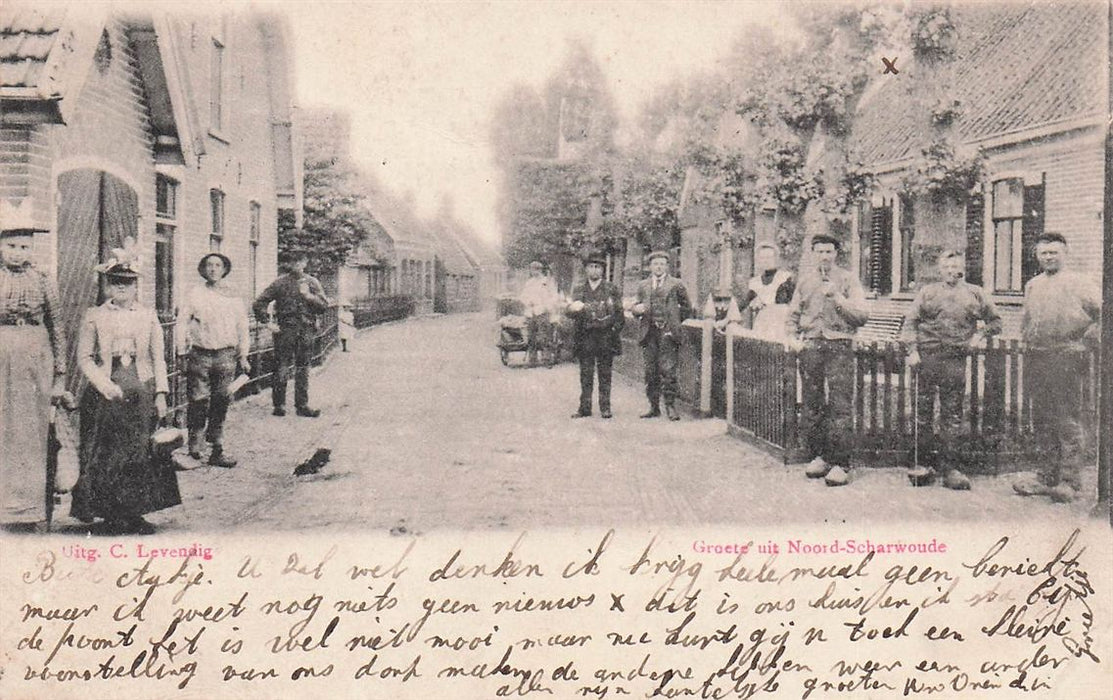 x
Uitg. C. Levendig
Groete uit Noord-Scharwoude
Aykje. U zal wel denken ik krijg heele maal geen bericht
maar ik weet nog niets geen nieuws x dit is ons huis en ik bij
de poont het is wel niet mooi maar nu kunt gij u toch een kleine
voorstelling van ons dorp maken de andere hebben weer een ander
allen zijn hartelijke groeten